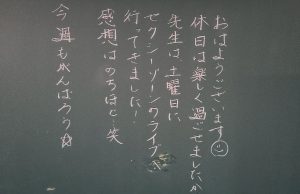 おはようございます☺
休日は楽しく過ごせましたか
先生は土曜日に
セクシーゾーンのライブへ
行ってきました！
感想はのちほど…笑
今週もがんばろう☆